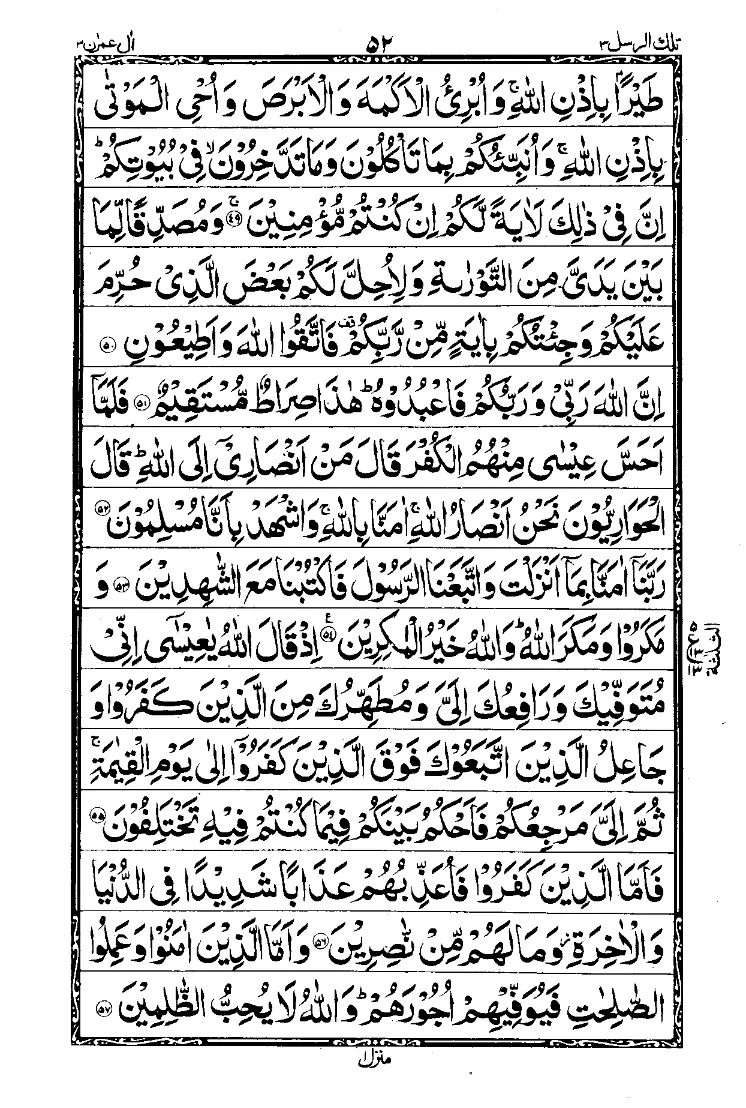 تلك الرسل ٣ ٥٢ اٰل عمرٰن ٣
طَيْرًۢا بِاِذْنِ اللّٰهِ ۚ وَاُبْرِئُ الْاَكْمَهَ وَالْاَبْرَصَ وَاُحْىِ الْمَوْتٰى
بِاِذْنِ اللّٰهِ ۚ وَاُنَبِّئُكُمْ بِمَا تَاْكُلُوْنَ وَمَا تَدَّخِرُوْنَ ۙ فِىْ بُيُوْتِكُمْ ؕ
اِنَّ فِىْ ذٰلِكَ لَاٰيَةً لَّكُمْ اِنْ كُنْتُمْ مُّؤْمِنِيْنَ ۚ ﴿۴۹﴾ وَمُصَدِّقًا لِّمَا
بَيْنَ يَدَىَّ مِنَ التَّوْرٰىةِ وَلِاُحِلَّ لَكُمْ بَعْضَ الَّذِىْ حُرِّمَ
عَلَيْكُمْ وَجِئْتُكُمْ بِاٰيَةٍ مِّنْ رَّبِّكُمْ قف فَاتَّقُوا اللّٰهَ وَاَطِيْعُوْنِ ﴿۵۰﴾
اِنَّ اللّٰهَ رَبِّىْ وَرَبُّكُمْ فَاعْبُدُوْهُ ؕ هٰذَا صِرَاطٌ مُّسْتَقِيْمٌ ﴿۵۱﴾ فَلَمَّاۤ
اَحَسَّ عِيْسٰى مِنْهُمُ الْكُفْرَ قَالَ مَنْ اَنْصَارِىْۤ اِلَى اللّٰهِ ؕ قَالَ
الْحَوَارِيُّوْنَ نَحْنُ اَنْصَارُ اللّٰهِ ۚ اٰمَنَّا بِاللّٰهِ ۚ وَاشْهَدْ بِاَنَّا مُسْلِمُوْنَ ﴿۵۲﴾
رَبَّنَاۤ اٰمَنَّا بِمَاۤ اَنْزَلْتَ وَاتَّبَعْنَا الرَّسُوْلَ فَاكْتُبْنَا مَعَ الشّٰهِدِيْنَ ﴿۵۳﴾ وَ
مَكَرُوْا وَمَكَرَ اللّٰهُ ؕ وَاللّٰهُ خَيْرُ الْمٰكِرِيْنَ ﴿۵۴﴾ ع اِذْ قَالَ اللّٰهُ يٰعِيْسٰۤى اِنِّىْ
مُتَوَفِّيْكَ وَرَافِعُكَ اِلَىَّ وَمُطَهِّرُكَ مِنَ الَّذِيْنَ كَفَرُوْا وَ
جَاعِلُ الَّذِيْنَ اتَّبَعُوْكَ فَوْقَ الَّذِيْنَ كَفَرُوْۤا اِلٰى يَوْمِ الْقِيٰمَةِ ۚ
ثُمَّ اِلَىَّ مَرْجِعُكُمْ فَاَحْكُمُ بَيْنَكُمْ فِيْمَا كُنْتُمْ فِيْهِ تَخْتَلِفُوْنَ ﴿۵۵﴾
فَاَمَّا الَّذِيْنَ كَفَرُوْا فَاُعَذِّبُهُمْ عَذَابًا شَدِيْدًا فِى الدُّنْيَا
وَالْاٰخِرَةِ ز وَمَا لَهُمْ مِّنْ نّٰصِرِيْنَ ﴿۵۶﴾ وَاَمَّا الَّذِيْنَ اٰمَنُوْا وَعَمِلُوا
الصّٰلِحٰتِ فَيُوَفِّيْهِمْ اُجُوْرَهُمْ ؕ وَاللّٰهُ لَا يُحِبُّ الظّٰلِمِيْنَ ﴿۵۷﴾
منزل ١
الثلثة